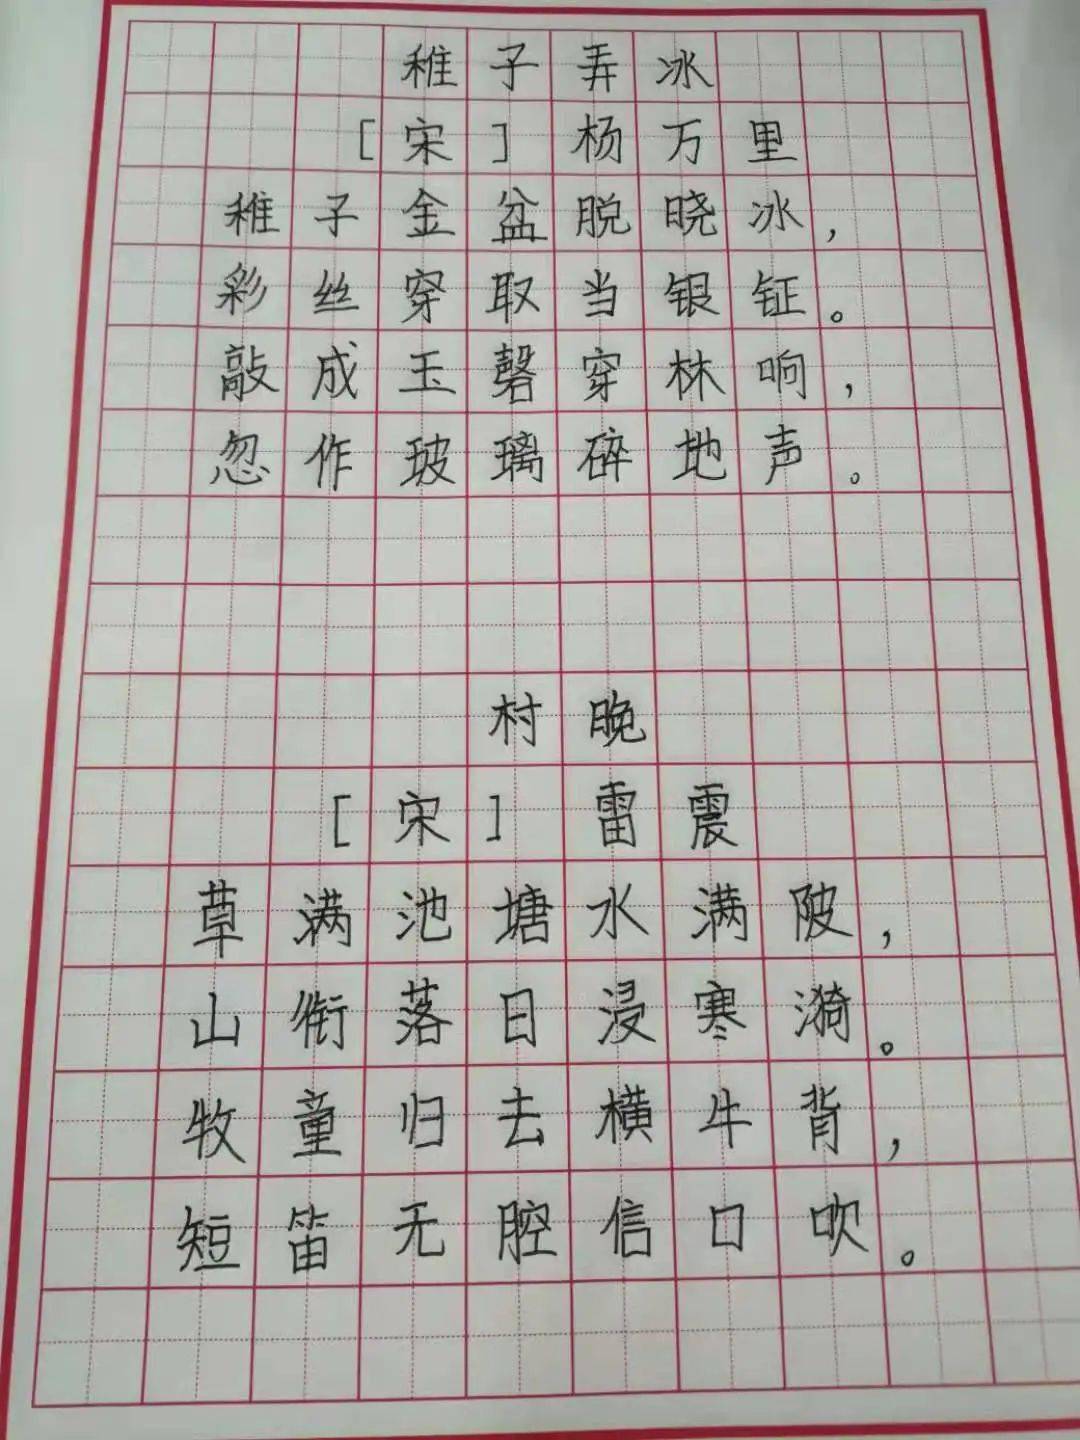 稚子弄冰
[宋]杨万里
稚子金盆脱晓冰，
彩丝穿取当银钲。
敲成玉磬穿林响，
忽作玻璃碎地声。
村晚
[宋]雷震
草满池塘水满陂，
山衔落日浸寒漪。
牧童归去横牛背，
短笛无腔信口吹。